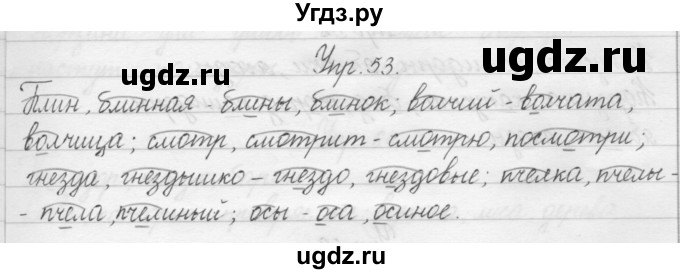 Угдз.ру
ugdz.ru
ugdz.ru
Упр. 53.
Блин, блинная - блины, блинок; волчий - волчата,
волчица; смотр, смотрит - смотрю, посмотри;
гнезда, гнездышко - гнездо, гнездовые; пчелка, пчелы -
- пчела, пчелиный; осы - оса, осиное.
ugdz.ru
ugdz.ru
ugdz.ru
ugdz.ru